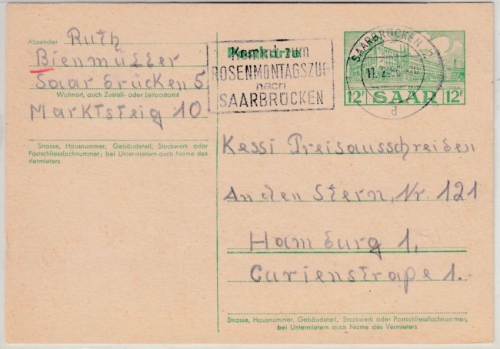 Absender: Ruth
Bienmüller
Saarbrücken 5
Wohnort, auch Zustell- oder Leitpostamt
Marktsteig 10
Strasse, Hausnummer, Gebäudeteil, Stockwerk oder
Postschliessfachnummer; bei Untermietern auch Name des
Vermieters
Kommt zum
ROSENMONTAGSZUG
nach
SAARBRÜCKEN
SAARBRÜCKEN
11.2.
d
12F SAAR 12F
Kessi Preisausschreiben
An den Stern, Nr. 121
Hamburg 1,
Curienstraße 1.
Strasse, Hausnummer, Gebäudeteil, Stockwerk oder Postschliessfachnummer;
bei Untermietern auch Name des Vermieters